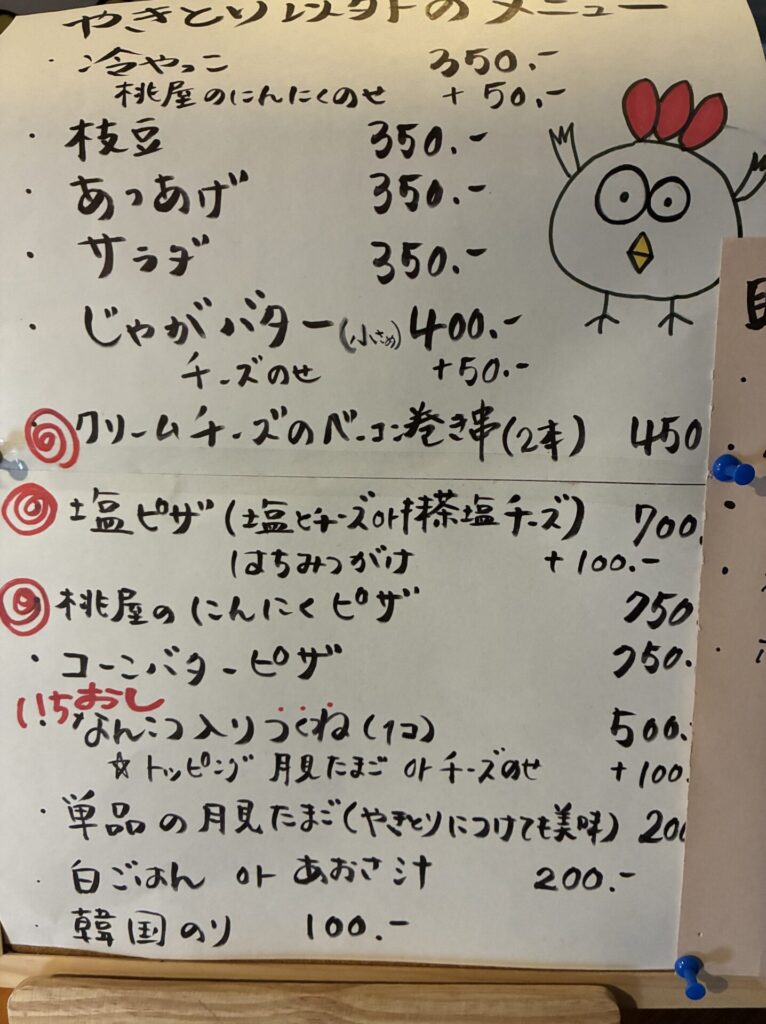 やきとり以外のメニュー
・冷やっこ 350.-
桃屋のにんにくのせ +50.-
・枝豆 350.-
・あつあげ 350.-
・サラダ 350.-
・じゃがバター(小さめ) 400.-
チーズのせ +50.-
・クリームチーズのベーコン巻き串(2本) 450
塩ピザ(塩とチーズor抹茶塩チーズ) 700.
はちみつがけ +100.-
桃屋のにんにくピザ 750
・コーンバターピザ 750.
いちおし
・なんこつ入りつくね(1コ) 500.
☆トッピング 月見たまご or チーズのせ +100.
・単品の月見たまご(やきとりにつけても美味) 200
・白ごはん or あおさ汁 200.-
・韓国のり 100.-